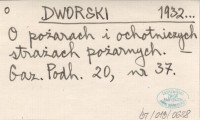 o DWORSKI 1932...
O pożarach i ochotniczych
strażach pożarnych. —
Gaz. Podh. 20, nr 37.